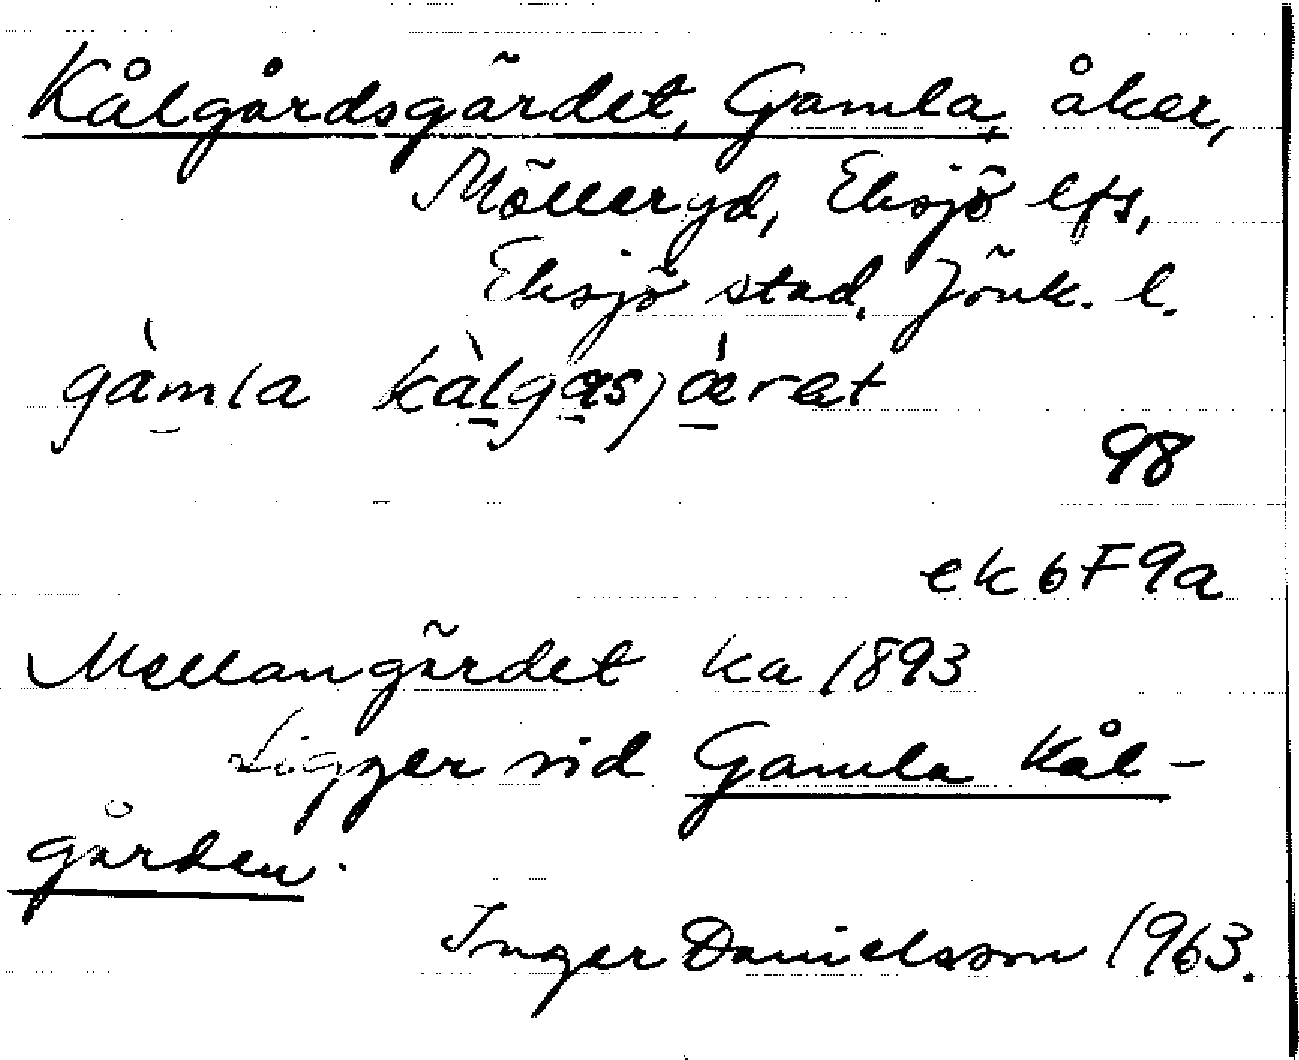 Kålgårdsgärdet, Gamla, åker,
Mölleryd, Eksjö lfs,
Eksjö stad, Jönk. l.
gàmla kàlgasjæ̀ret
98
ek 6F9a
Mellangärdet ka 1893
Ligger vid Gamla Kål-
gården.
Inger Danielsson 1963.